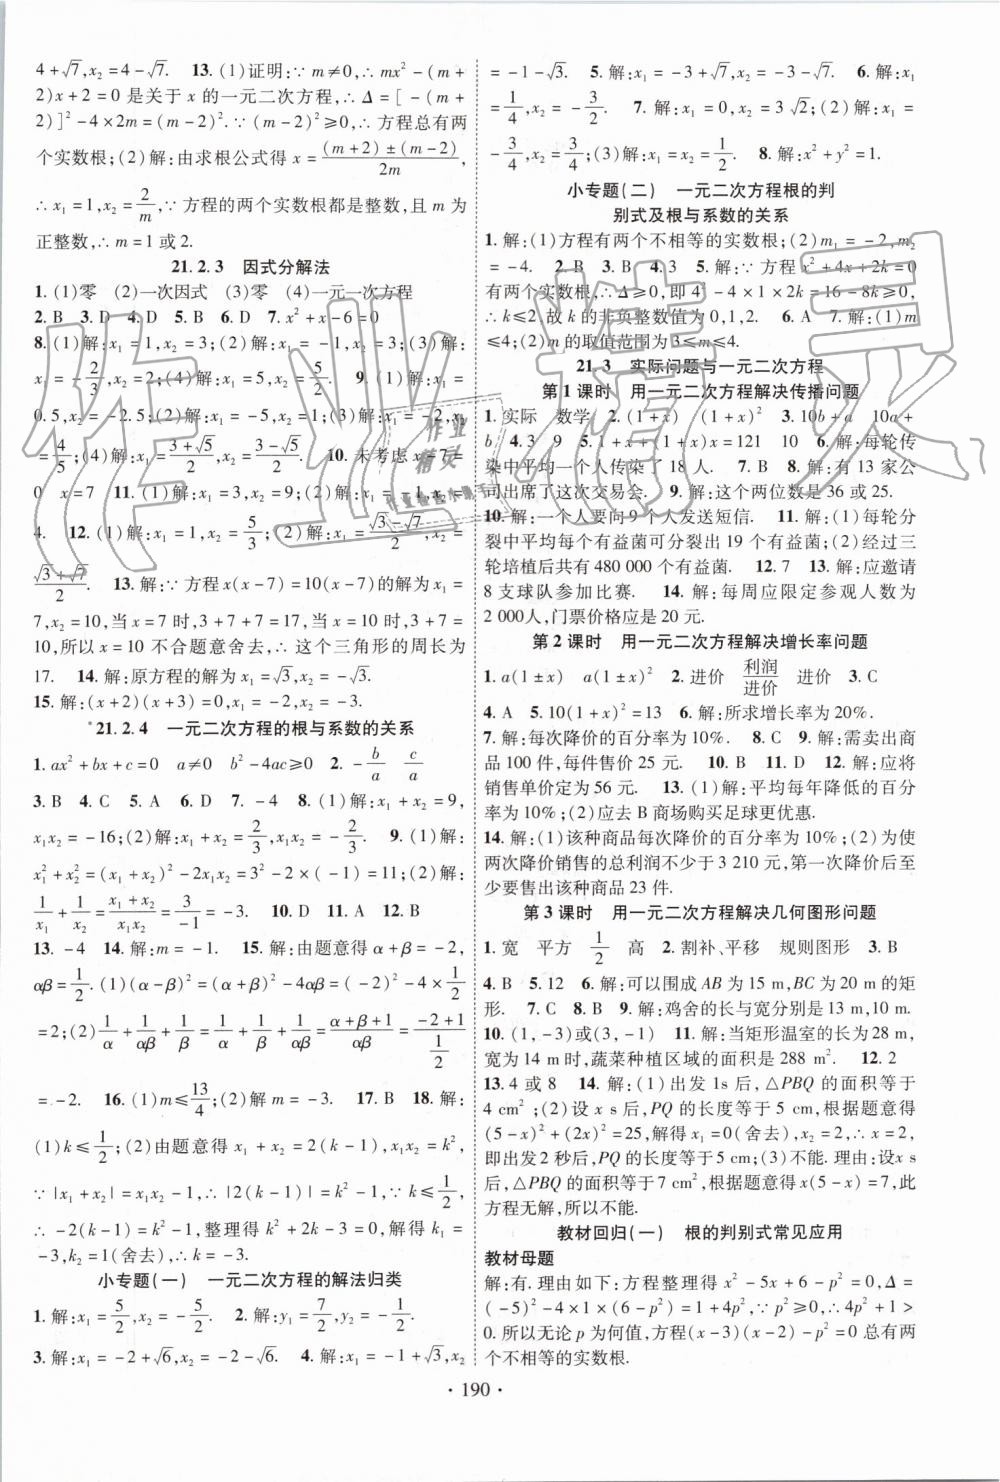 4+√7,x₂=4-√7. 13. (1)证明:∵m≠0,∴mx²-(m+
2)x+2=0 是关于 x 的一元二次方程,∴Δ=[-(m+
2)]²-4×2m=(m-2)².∵(m-2)²≥0,∴方程总有两
个实数根;(2)解:由求根公式得 x=((m+2)±(m-2))/2m,
∴x₁=1,x₂=2/m,∵方程的两个实数根都是整数,且 m 为
正整数,∴m=1 或 2.
21.2.3 因式分解法
1. (1)零 (2)一次因式 (3)零 (4)一元一次方程
2. B 3. D 4. D 5. B 6. D 7. x²+x-6=0
8. (1)解:x₁=1,x₂=3;(2)解:x₁=-1,x₂=3;(3)
解:x₁=-2/3,x₂=2;(4)解:x₁=5,x₂=2. 9. (1)解:x₁=
0.5,x₂=-2.5;(2)解:x₁=1,x₂=5;(3)解:x₁=-2,x₂
=4/5;(4)解:x₁=(3+√5)/2,x₂=(3-√5)/2. 10. 未考虑 x-7=
0 x=7 11. (1)解:x₁=3,x₂=9;(2)解:x₁=2,x₂=
4. 12. (1)解:x₁=1,x₂=5/3;(2)解:x₁=(√3-√7)/2,x₂=
(√3+√7)/2. 13. 解:∵方程x(x-7)=10(x-7)的解为x₁=
7,x₂=10,当 x=7 时,3+7+7=17,当 x=10 时,3+7=
10,所以 x=10 不合题意舍去,∴这个三角形的周长为
17. 14. 解:原方程的解为 x₁=√3,x₂=-√3.
15. 解:(x+2)(x+3)=0,x₁=-2,x₂=-3.
*21.2.4 一元二次方程的根与系数的关系
1. ax²+bx+c=0 a≠0 b²-4ac≥0 2. -b/a c/a
3. B 4. C 5. A 6. D 7. -4 8. (1)解:x₁+x₂=9,
x₁x₂=-16;(2)解:x₁+x₂=2/3,x₁x₂=-2/3. 9. (1)解:
x₁²+x₂²=(x₁+x₂)²-2x₁x₂=3²-2×(-1)=11;(2)解:
1/x₁+1/x₂=(x₁+x₂)/(x₁x₂)=3/(-1)=-3. 10. D 11. A 12. B
13. -4 14. 解:m=-1. 15. 解:由题意得 α+β=-2,
αβ=1/2. (1)(α-β)²=(α+β)²-4αβ=(-2)²-4×1/2
=2;(2)1/α+1/αβ+1/β=1/α+1/β+1/αβ=(α+β+1)/αβ=(-2+1)/(1/2)
=-2. 16. (1)m≤13/4;(2)解 m=-3. 17. B 18. 解:
(1)k≤1/2;(2)由题意得 x₁+x₂=2(k-1),x₁x₂=k²,
∵|x₁+x₂|=x₁x₂-1,∴|2(k-1)|=k²-1,∵k≤1/2,
∴-2(k-1)=k²-1,整理得 k²+2k-3=0,解得 k₁=
-3,k₂=1(舍去),∴k=-3.
小专题(一) 一元二次方程的解法归类
1. 解:x₁=5/2,x₂=-5/2. 2. 解:y₁=7/2,y₂=-1/2.
3. 解:x₁=-2+√6,x₂=-2-√6. 4. 解:x₁=-1+√3,x₂
=-1-√3. 5. 解:x₁=-3+√7,x₂=-3-√7. 6. 解:x₁
=1/4,x₂=-3/2. 7. 解:(1)x₁=0,x₂=3√2;(2)解:x₁=
-3/4,x₂=3/4;(3)解:x₁=x₂=1/2. 8. 解:x²+y²=1.
小专题(二) 一元二次方程根的判
别式及根与系数的关系
1. 解:(1)方程有两个不相等的实数根;(2)m₁=-2,m₂
=-4. 2. B 3. B 4. 3 5. 解:∵方程 x²+4x+2k=0
有两个实数根,∴Δ≥0,即 4²-4×1×2k=16-8k≥0,
∴k≤2. 故 k 的非负整数值为 0,1,2. 6. A 7. 解:(1)m
≤4;(2)m 的取值范围为 3≤m≤4.
21.3 实际问题与一元二次方程
第1课时 用一元二次方程解决传播问题
1. 实际 数学 2. (1+x) (1+x)² 3. 10b+a 10a+
b 4. 3 9 5. 1+x+(1+x)x=121 10 6. 解:每轮传
染中平均一个人传染了 18 人. 7. B 8. 解:有 13 家公
司出席了这次交易会. 9. 解:这个两位数是 36 或 25.
10. 解:一个人要向 9 个人发送短信. 11. 解:(1)每轮分
裂中平均每个有益菌可分裂出 19 个有益菌;(2)经过三
轮培植后共有 480 000 个有益菌. 12. 7 13. 解:应邀请
8 支球队参加比赛. 14. 解:每周应限定参观人数为
2 000人,门票价格应是 20 元.
第2课时 用一元二次方程解决增长率问题
1. a(1±x) a(1±x)² 2. 进价 利润/进价 进价 3. C
4. A 5. 10(1+x)²=13 6. 解:所求增长率为 20%.
7. 解:每次降价的百分率为 10%. 8. C 9. 解:需卖出商
品 100 件,每件售价 25 元. 10. B 11. D 12. 解:应将
销售单价定为 56 元. 13. (1)解:平均每年降低的百分
率为 10%;(2)应去 B 商场购买足球更优惠.
14. 解:(1)该种商品每次降价的百分率为 10%;(2)为使
两次降价销售的总利润不少于 3 210 元,第一次降价后至
少要售出该种商品 23 件.
第3课时 用一元二次方程解决几何图形问题
1. 宽 平方 1/2 高 2. 割补、平移 规则图形 3. B
4. B 5. 12 6. 解:可以围成 AB 为 15 m,BC 为 20 m 的矩
形. 7. C 8. B 9. 解:鸡舍的长与宽分别是 13 m,10 m.
10. (1,-3)或(3,-1) 11. 解:当矩形温室的长为 28 m,
宽为 14 m 时,蔬菜种植区域的面积是 288 m². 12. 2
13. 4 或 8 14. 解:(1)出发 1s 后,△PBQ 的面积等于
4 cm²;(2)设 x s 后,PQ 的长度等于 5 cm,根据题意得
(5-x)²+(2x)²=25,解得 x₁=0(舍去),x₂=2,∴x=2,
即出发 2 秒后,PQ 的长度等于 5 cm;(3)不能. 理由:设x s
后,△PBQ 的面积等于 7 cm²,根据题意得 x(5-x)=7,此
方程无解,所以不能.
教材回归(一) 根的判别式常见应用
教材母题
解:有. 理由如下:方程整理得 x²-5x+6-p²=0,Δ=
(-5)²-4×1×(6-p²)=1+4p²,∵p²≥0,∴4p²+1>
0.所以无论 p 为何值,方程(x-3)(x-2)-p²=0 总有两
个不相等的实数根.
·190·
作业精灵
作业
精灵